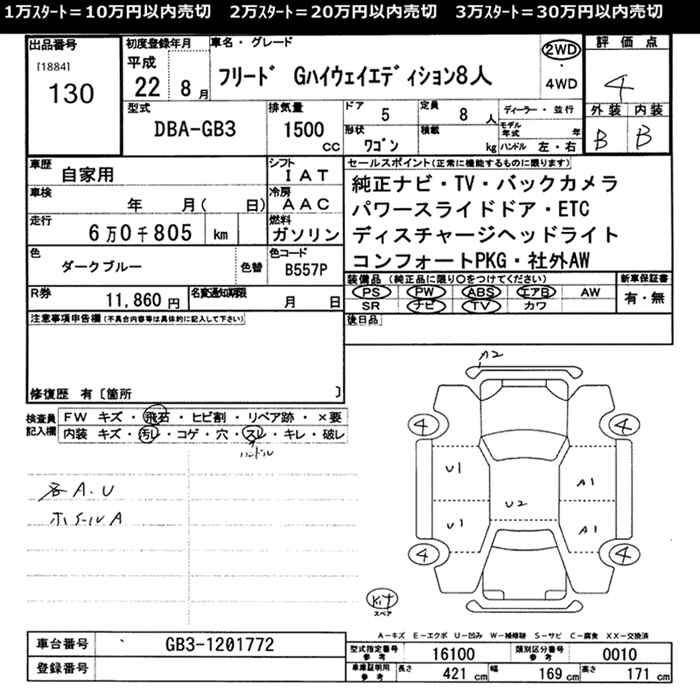 1万ｽﾀｰﾄ＝10万円以内売切　2万ｽﾀｰﾄ＝20万円以内売切　3万ｽﾀｰﾄ＝30万円以内売切
出品番号 初度登録年月 車名・グレード 評価点
[1884] 平成
130 22 8月 フリード Gハイウェイエディション8人 2WD・4WD 4
型式 排気量 ドア 定員 ディーラー・並行 外装 内装
DBA-GB3 1500 CC 5 8人 モデル年式 年 B B
形状 積載
ワゴン kg ハンドル 左・右
車歴 シフト セールスポイント(正常に機能するものに限ります)
自家用 IAT 純正ナビ・TV・バックカメラ
車検 冷房
年 月( 日) AAC パワースライドドア・ETC
走行 燃料
6万0千805 km ガソリン ディスチャージヘッドライト
色 色コード
ダークブルー 色替 B557P コンフォートPKG・社外AW
R券 名変通知期限 装備品 (純正品に限り○をつけてください) 新車保証書
11,860円 月 日 PS PW ABS エアB AW 有・無
SR ナビ TV カワ
注意事項申告欄(不具合内容等は具体的に記入して下さい) 後日品
修復歴 有〔箇所 〕
検査員記入欄 FW キズ・飛石・ヒビ割・リペア跡・×要
内装 キズ・汚レ・コゲ・穴・スレ・キレ・破レ
ハンドル
各A.U
ホイールA
A2
4 4
U1 A1
U2
U1 A1
4 4
Kit
スペア
A－キズ E－エクボ U－凹み W－補修跡 S－サビ C－腐食 XX－交換済
車台番号 GB3-1201772
登録番号
型式指定番号 参考 16100 類別区分番号 参考 0010
車庫証明用 参考 長さ 421 cm 幅 169 cm 高さ 171 cm